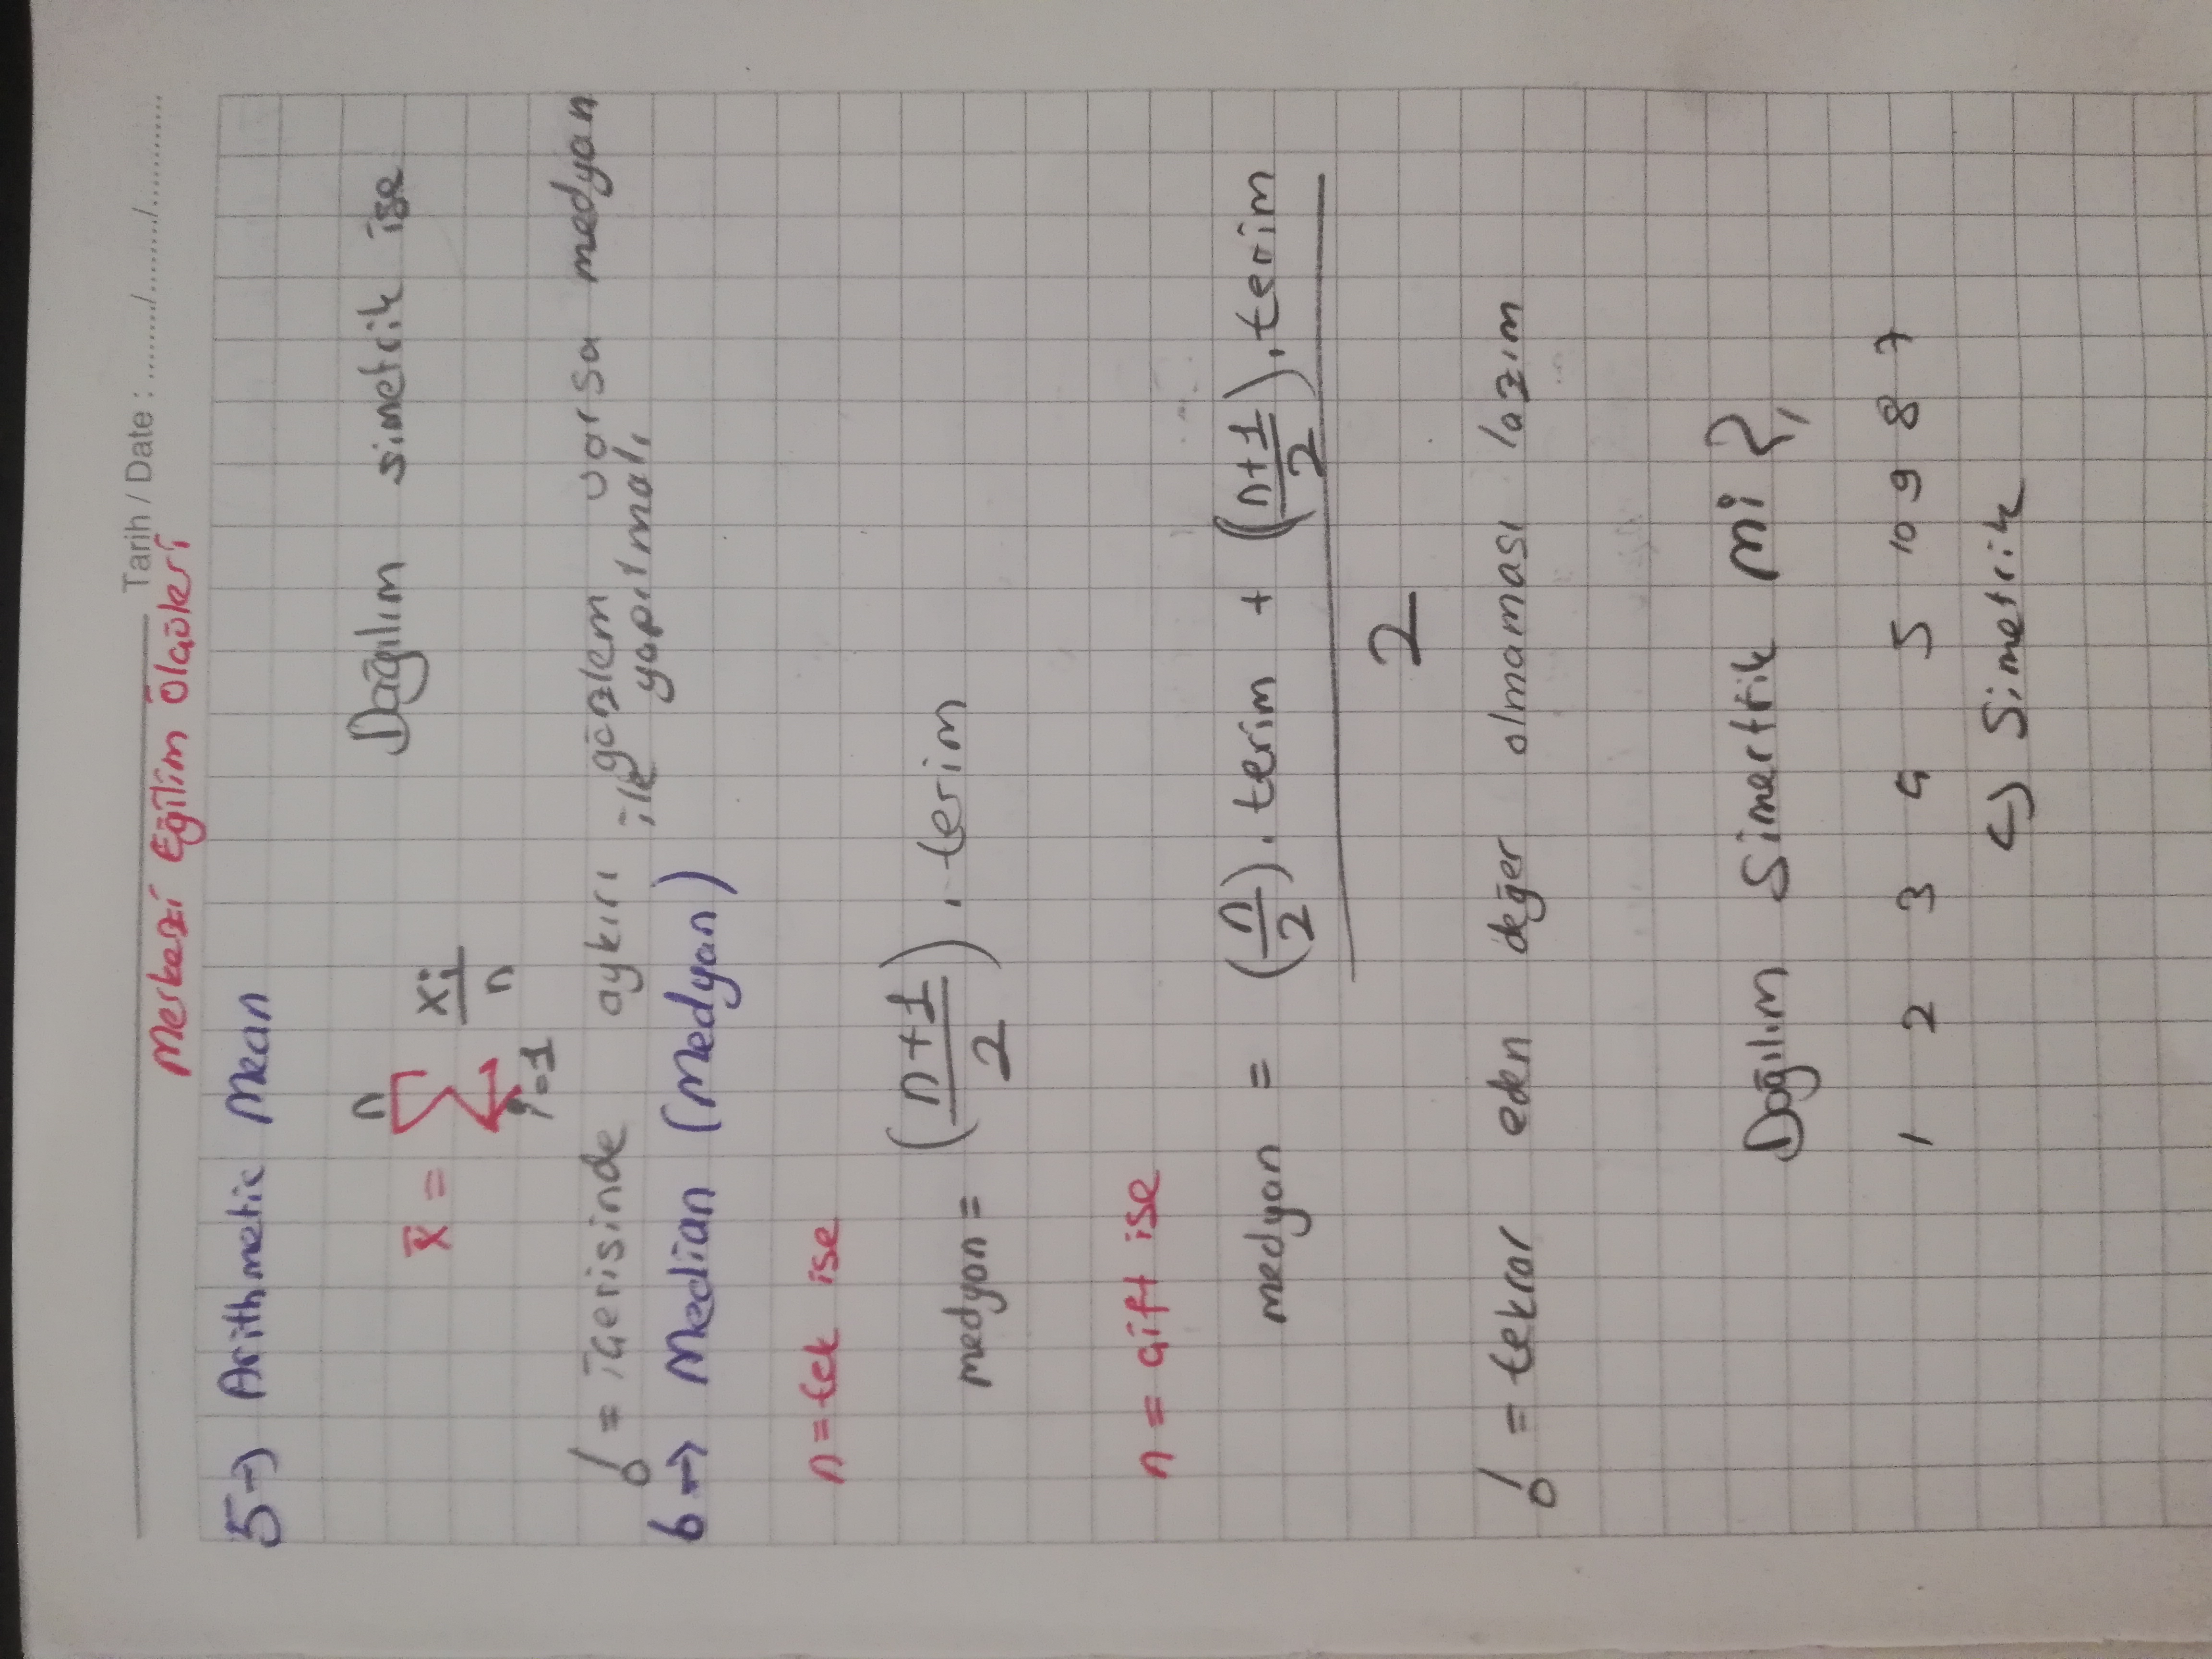 Tarih / Date : ......../......../............
Merkezi Eğilim Ölçüleri
5→) Arithmetic Mean
Dağılım simetrik ise
x̄ = n Σ i=1 xi/n
= İçerisinde aykırı gözlem varsa medyan
ile yapılmalı
6→) Median (Medyan)
n=tek ise
medyan = ((n+1)/2). terim
n = çift ise
medyan = ((n/2). terim + ((n+1)/2). terim)/2
= tekrar eden değer olmaması lazım
Dağılım Simertrik mi?
1 2 3 4 5 10 9 8 7
↳ Simetrik